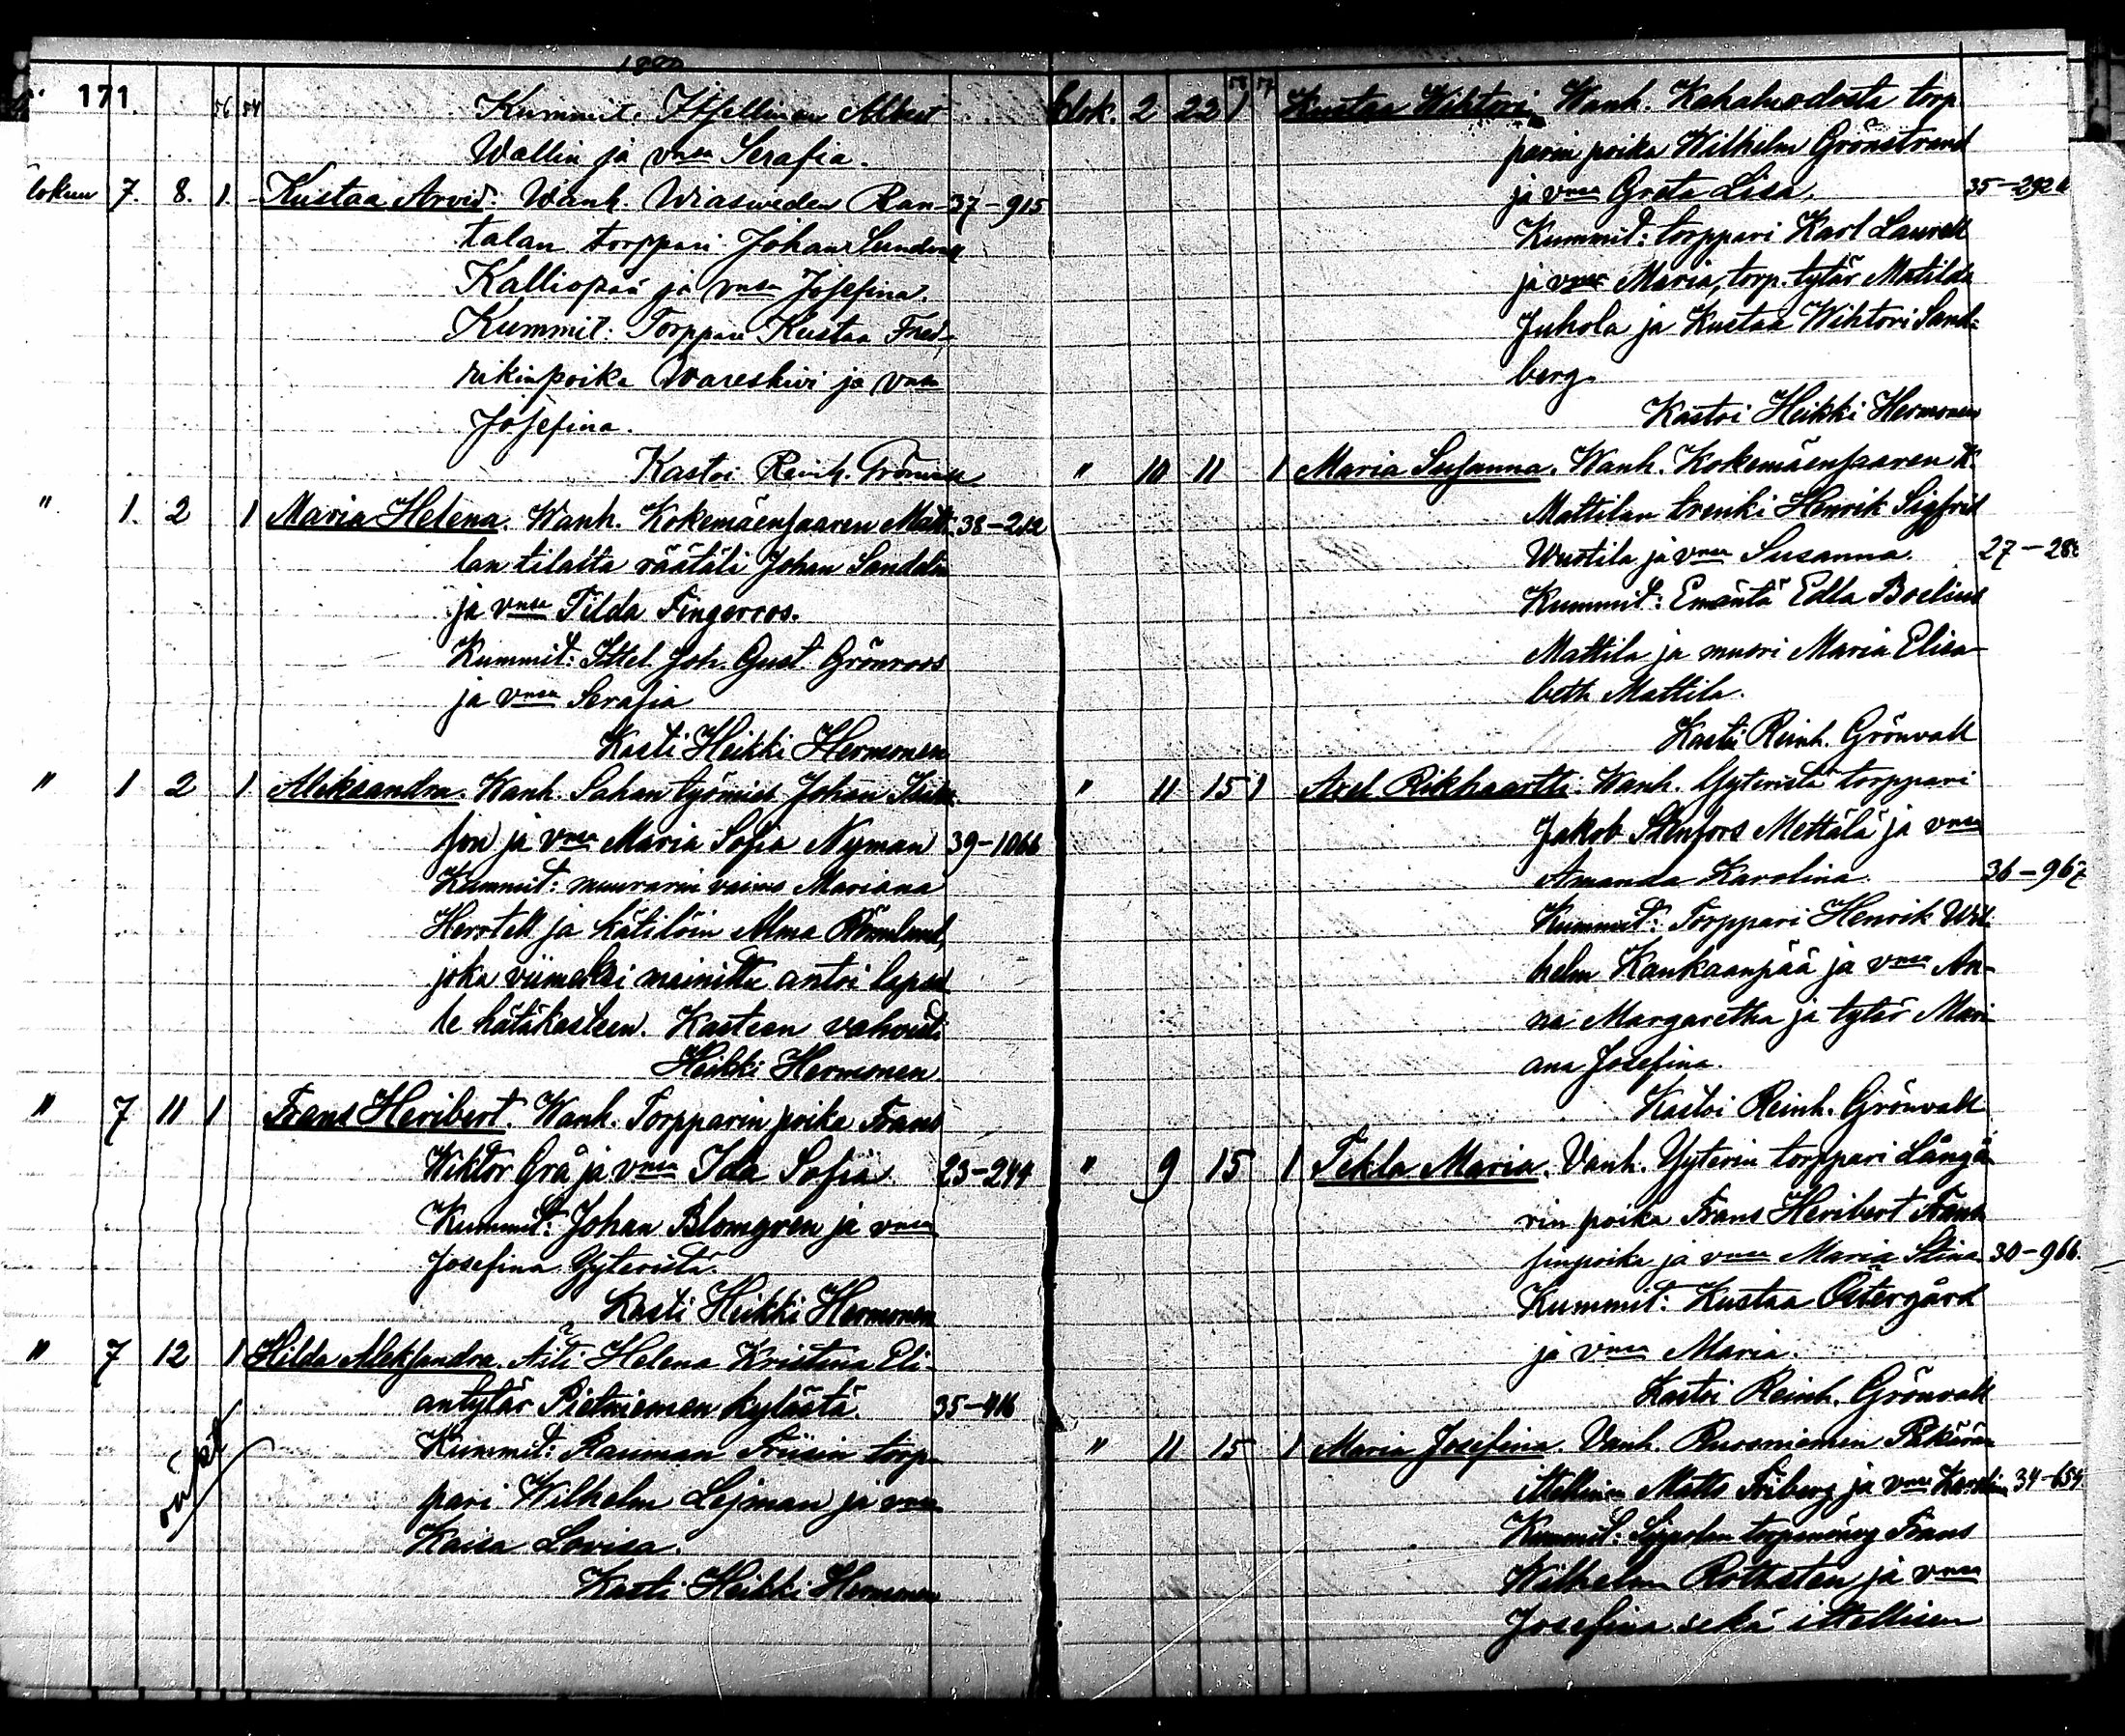 171
56 54 Kummit: Albert
Wallin ja vmsa Serafia.
lokuu 7. 8. 1. Kustaa Arvid: Wanh. Wiasweden Ran- 37-915
talan torppari Johan
Kalliopää ja vmsa Josefina.
Kummit: Torppari Kustaa Fred-
rikinpoika ja vmsa
Josefina.
Kastoi Reinh. Grönvall
" 1. 2 1 Maria Helena. Wanh. Kokemäensaaren Matti- 38-212
lan tilalta räätäli Johan Sandelin
ja vmsa Tilda Fingerroos.
Kummit: Ittel. Joh. Gust. Grönroos
ja vmsa Serafia
Kasti Heikki Hermonen
" 1 2 1 Aleksandra. Wanh. Sahan työmies Johan
son ja vmsa Maria Sofia Nyman 39-1066
Kummit: muurarin vaimo Mariana
Herrtell ja kätilöin Alma
joka viimeksi mainittu antoi lapsel-
le hätäkasteen. Kasteen vahvisti
Heikki Hermonen
" 7 11 1 Frans Heribert. Wanh. Torpparin poika Frans
Wiktor Grå ja vmsa Ida Sofia 23-244
Kummit: Johan Blomgren ja vmsa
Josefina Yyteristä.
Kasti Heikki Hermonen
" 7 12 1 Hilda Aleksandra. Äiti Helena Kristina Eli-
antytär Pietniemen kylästä. 35-416
Kummit: Rauman Friisin torp-
pari Wilhelm Lejman ja vmsa
Kaisa Lovisa.
Kasti Heikki Hermonen
Elok. 2 22 1 58 57 Kustaa Wihtori. Wanh. Kahaluodosta torp.
parin poika Wilhelm Grönstrand
ja vmsa Greta Lisa. 35-292
Kummit: torppari Karl Laurell
ja vmsa Maria, torp. tytär Matilda
Juhola ja Kustaa Wihtori Sand-
berg.
Kastoi Heikki Hermonen
" 10 11 1 Maria Susanna. Wanh. Kokemäensaaren W.
Mattilan trenki Henrik Sigfrid
Wustila ja vmsa Susanna. 27-28
Kummit: Emäntä Edla Boelius
Mattila ja muori Maria Elisa-
beth Mattila.
Kastoi Reinh. Grönvall
" 11 15 1 Axel Rikhaartti. Wanh. Yyteristä torppari
Jakob Stenfors Mettälä ja vmsa
Amanda Karolina. 36-967
Kummit: Torppari Henrik Wil-
helm Kankaanpää ja vmsa An-
na Margaretha ja tytär Mari-
ana Josefina.
Kastoi Reinh. Grönvall
" 9 15 1 Tekla Maria. Vanh. Yyterin torppari Långä-
rin poika Frans Heribert Frans-
sinpoika ja vmsa Maria Stina 30-966.
Kummit: Kustaa Östergård
ja vmsa Maria.
Kastoi Reinh. Grönvall
" 11 15 1 Maria Josefina. Vanh. Ruosniemen
ittellinen Matts Friberg ja vmsa Karolina 34-654
Kummit: Frans
Wilhelm Rothsten ja vmsa
Josefina sekä ittellisen